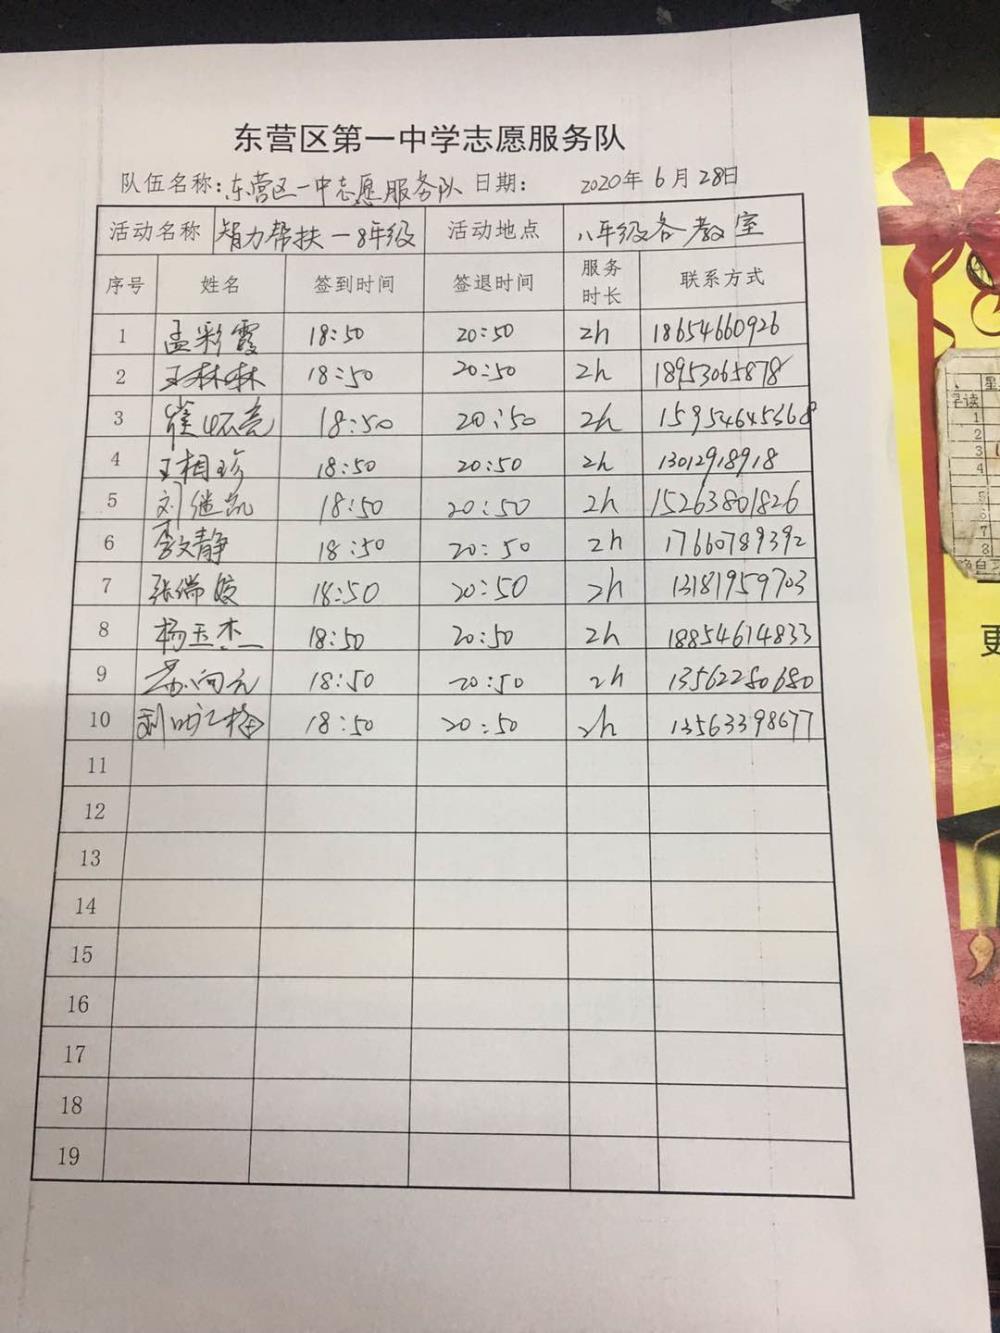 东营区第一中学志愿服务队
队伍名称：东营区一中志愿服务队 日期： 2020年 6月 28日
活动名称 智力帮扶一8年级 活动地点 八年级各教室
序号 姓名 签到时间 签退时间 服务时长 联系方式
1 孟彩霞 18:50 20:50 2h 18654660926
2 王林林 18:50 20:50 2h 18953065878
3 崔怀亮 18:50 20:50 2h 15954645368
4 王相珍 18:50 20:50 2h 13012918918
5 刘继凯 18:50 20:50 2h 15263801826
6 李文静 18:50 20:50 2h 17660789392
7 张瑞 18:50 20:50 2h 13181959703
8 杨玉杰 18:50 20:50 2h 18854614833
9 苏向元 18:50 20:50 2h 13562280680
10 18:50 20:50 2h 13563398677
11
12
13
14
15
16
17
18
19
星
早读
1
2
3
4
5
6
7
8
更